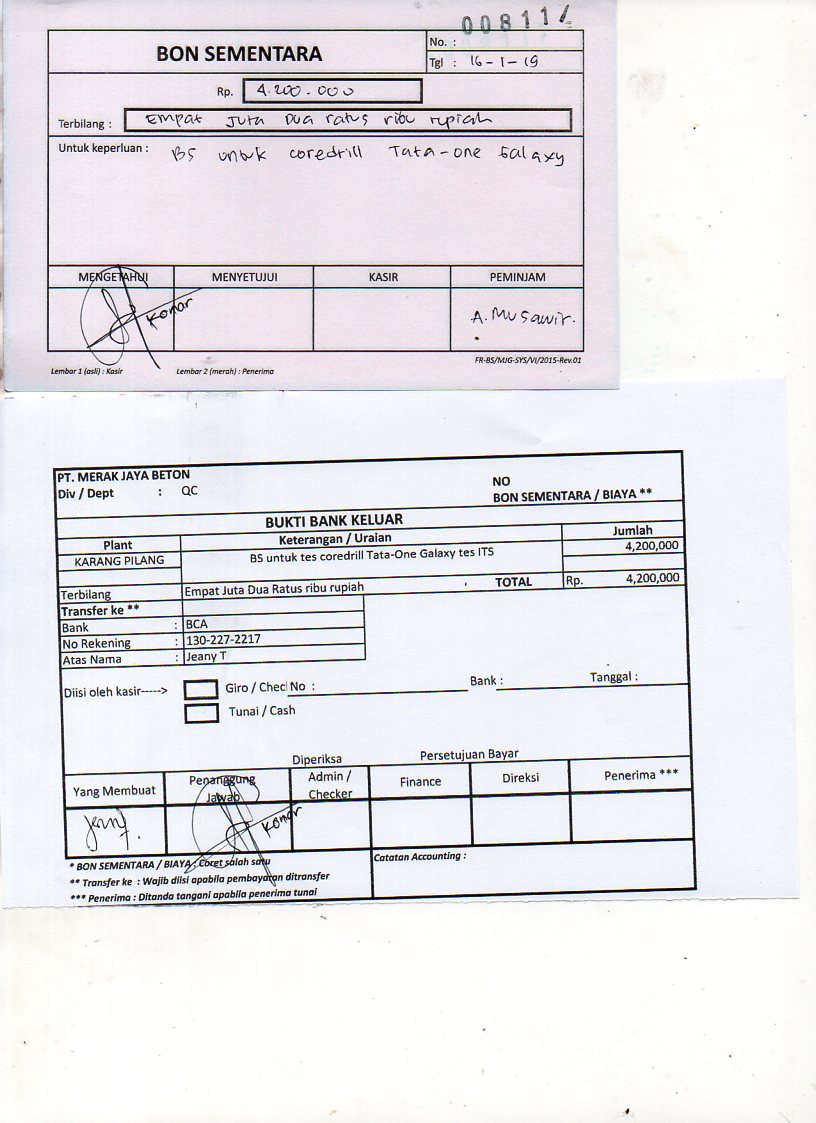 00811
BON SEMENTARA
No. :
Tgl : 16-1-19
Rp. 4.200.000
Terbilang : Empat Juta Dua ratus ribu rupiah
Untuk keperluan : BS untuk coredrill Tata-one Galaxy
MENGETAHUI MENYETUJUI KASIR PEMINJAM
Konar A. Musawir.
FR-BS/MJG-SYS/VI/2015-Rev.01
Lembar 1 (asli) : Kasir Lembar 2 (merah) : Penerima
PT. MERAK JAYA BETON
NO
Div / Dept : QC
BON SEMENTARA / BIAYA **
BUKTI BANK KELUAR
Plant Keterangan / Uraian Jumlah
KARANG PILANG BS untuk tes coredrill Tata-One Galaxy tes ITS 4,200,000
Terbilang Empat Juta Dua Ratus ribu rupiah TOTAL Rp. 4,200,000
Transfer ke **
Bank : BCA
No Rekening : 130-227-2217
Atas Nama : Jeany T
Diisi oleh kasir-----> Giro / Chec No : Bank : Tanggal :
Tunai / Cash
Diperiksa Persetujuan Bayar
Yang Membuat Penanggung Jawab Admin / Checker Finance Direksi Penerima ***
Konar
* BON SEMENTARA / BIAYA : Coret salah satu
Catatan Accounting :
** Transfer ke : Wajib diisi apabila pembayaran ditransfer
*** Penerima : Ditanda tangani apabila penerima tunai